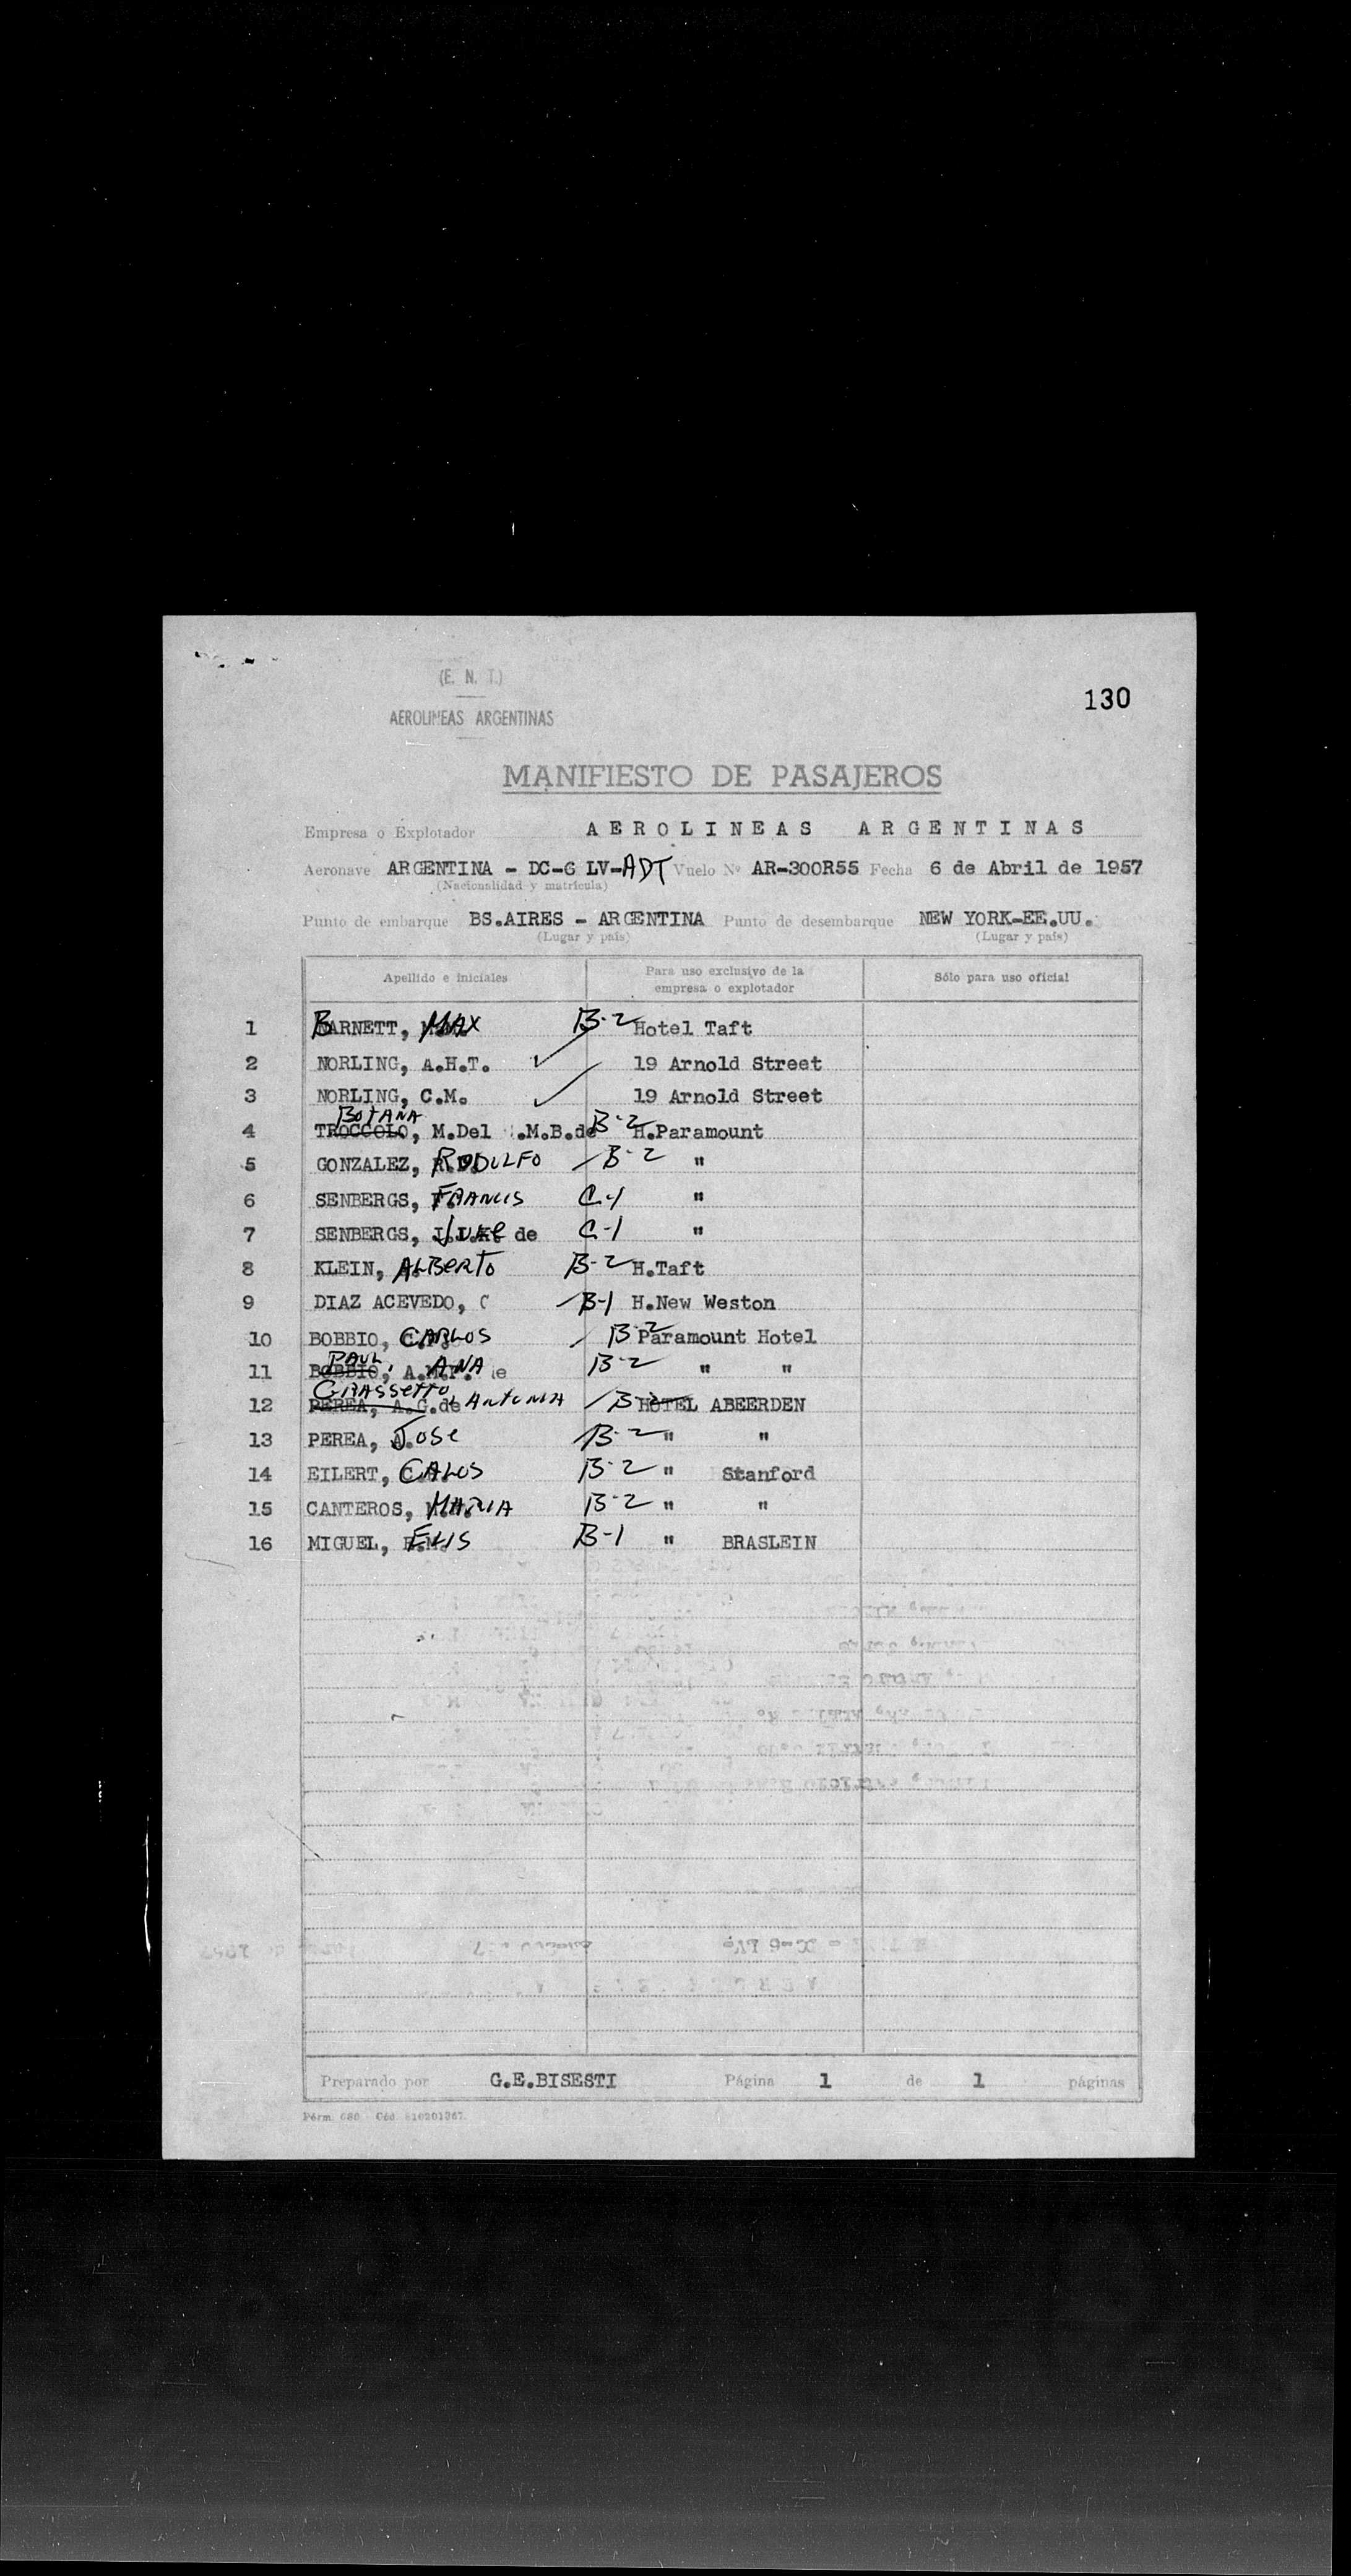 (E. N. T.)
AEROLINEAS ARGENTINAS
130
MANIFIESTO DE PASAJEROS
Empresa o Explotador AEROLINEAS ARGENTINAS
Aeronave ARGENTINA - DC-6 LV-ADT Vuelo Nº AR-300R55 Fecha 6 de Abril de 1957
(Nacionalidad y matrícula)
Punto de embarque BS.AIRES - ARGENTINA Punto de desembarque NEW YORK-EE.UU.
(Lugar y país) (Lugar y país)
Apellido e iniciales Para uso exclusivo de la empresa o explotador Sólo para uso oficial
1 BARNETT, MAX B-2 Hotel Taft
2 NORLING, A.H.T. ✓ 19 Arnold Street
3 NORLING, C.M. ✓ 19 Arnold Street
BOTANA
4 TROCCOLO, M.Del .M.B.de B-2 H.Paramount
5 GONZALEZ, RODULFO B-2 "
6 SENBERGS, FRANCIS C-1 "
7 SENBERGS, de C-1 "
8 KLEIN, ALBERTO B-2 H.Taft
9 DIAZ ACEVEDO, C B-1 H.New Weston
10 BOBBIO, CARLOS B-2 Paramount Hotel
PAUL,
11 BOBBIO, A.M.P. ANA de B-2 " "
GRASSETTO
12 PEREA, A.G.de ANTONIA B-2 HOTEL ABEERDEN
13 PEREA, JOSE B-2 " "
14 EILERT, CALOS B-2 " Stanford
15 CANTEROS, MARIA B-2 " "
16 MIGUEL, ELIS B-1 " BRASLEIN
Preparado por G.E.BISESTI Página 1 de 1 páginas